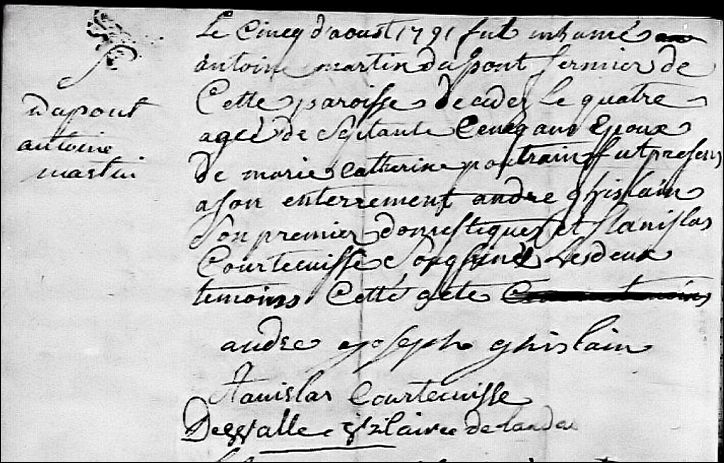 Le Cincq d'aoust 1791 fut inhumé
antoine martin Dapont fermier de
Cette paroisse decedez Le quatre
ageé de Septante Cincq ans Epoux
de marie Catherine poutrain fut presens
a son enterrement andre ghislain
Son premier domestiques et Stanislas
Courtecuisse Soussinéz Les deux
temoins Cette acte
Dapont
antoine
martin
andre joseph ghislain
Stanislas Courtecuisse